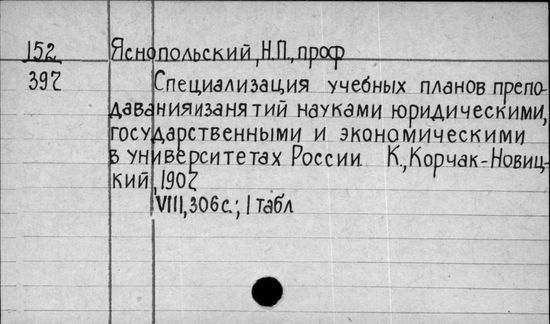 152 Яснопольский, Н.П., проф
397 Специализация учебных планов препо-
давания и занятий науками юридическими,
государственными и экономическими
в университетах России К., Корчак-Новиц-
кий, 1907
VIII, 306 с.; 1 табл